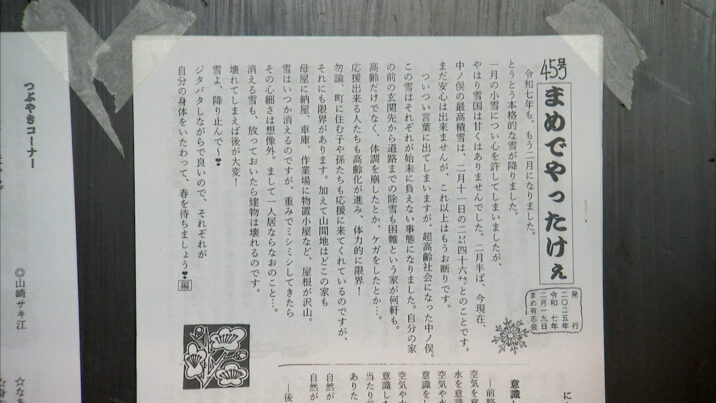 45号
まめでやったけぇ
発行
二〇二五年
令和七年
二月一九日
まめ有志会
令和七年も、もう二月になりました。
とうとう本格的な雪が降りました。
一月の小雪につい心を許してしまいましたが、
やはり雪国は甘くはありませんでした。二月半ば、今現在、
中ノ俣の最高積雪は、二月十一日の二㍍四十六㌢とのことです。
まだ安心は出来ませんが、これ以上はもうお断りです。
ついつい言葉に出てしまいますが、超高齢社会になった中ノ俣。
この雪はそれぞれが始末に負えない事態になりました。自分の家
の前の玄関先から道路までの除雪も困難という家が何軒も。
高齢だけでなく、体調を崩したとか、ケガをしたとか…。
応援出来る人たちも高齢化が進み、体力的に限界！
勿論、町に住む子や孫たちも応援に来てくれているのですが、
それにも限界があります。加えて山間地はどこの家も
母屋に納屋、車庫、作業場に物置小屋など、屋根が沢山。
雪はいつか消えるのですが、重みでミシミシしてきたら
その心細さは想像外。まして一人居ならなおのこと…。
消える雪も、放っておいたら建物は壊れるのです。
壊れてしまえば後が大変！
雪よ、降り止んで〜❣
ジタバタしながらで良いので、それぞれが
自分の身体をいたわって、春を待ちましょう❣編
つぶやきコーナー
◎山崎サキ江